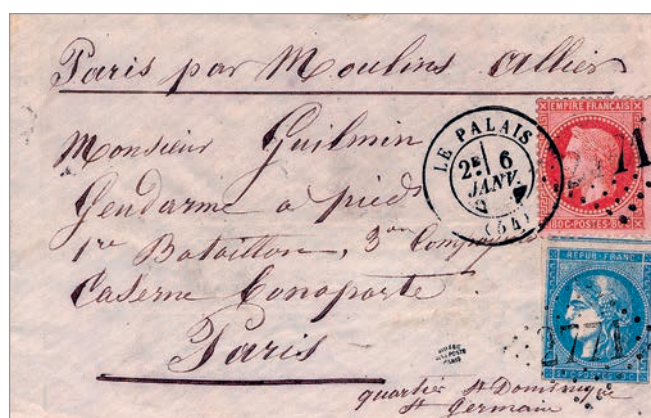 Paris par Moulins Allier
Monsieur Guilmin
Gendarme a pied
1re Bataillon, 3me Compagnie
Caserne Bonaparte
Paris
quartier St Dominique
St Germain
LE PALAIS
2E 6
JANV.
(54)
EMPIRE FRANÇAIS
80 C POSTES 80 C
2771
REPUB. FRANC.
2771